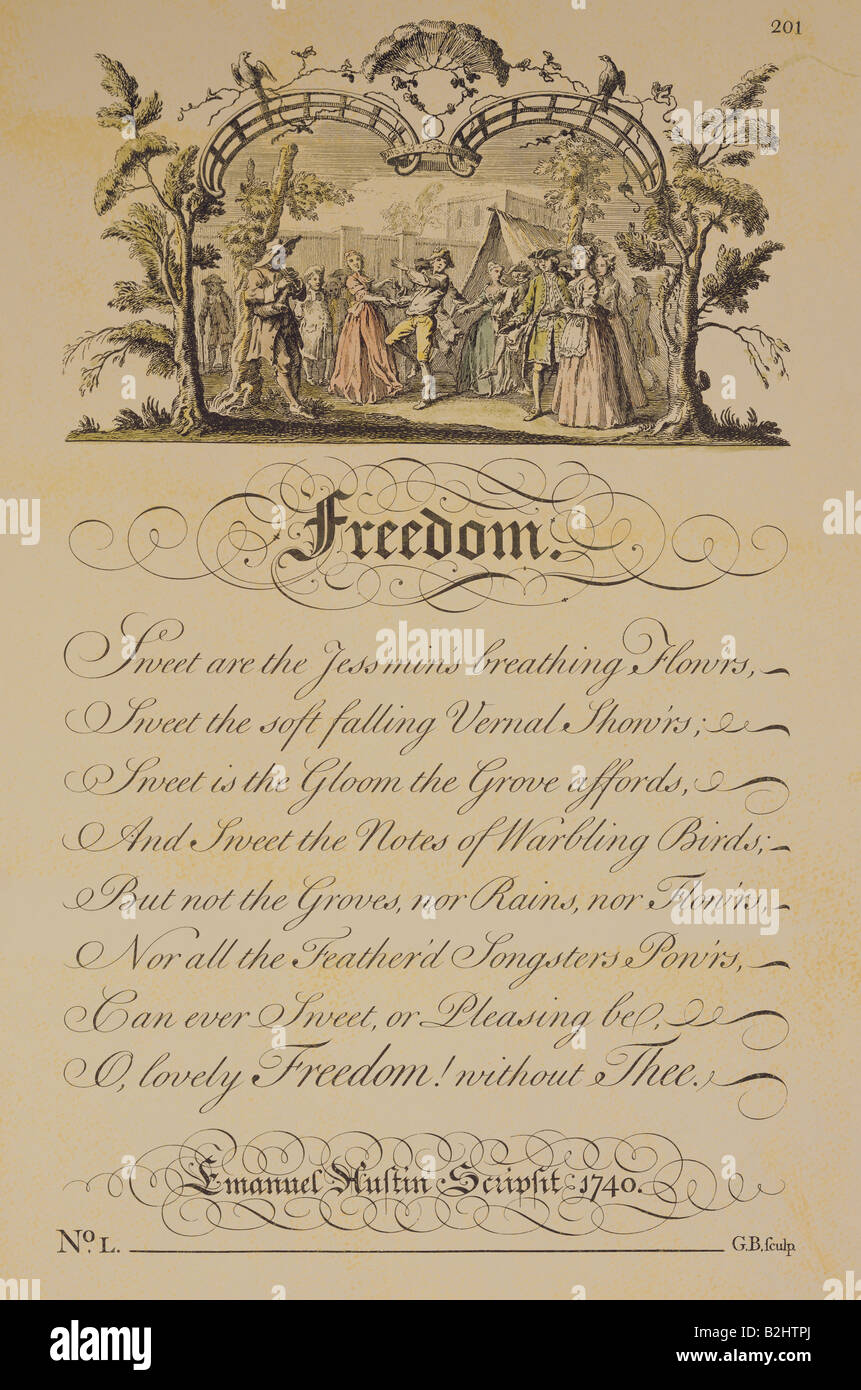 201
Freedom.
Sweet are the Jessmin's breathing Flow'rs,
Sweet the soft falling Vernal Show'rs;
Sweet is the Gloom the Grove affords,
And Sweet the Notes of Warbling Birds;
But not the Groves, nor Rains, nor Flow'rs,
Nor all the Feather'd Songsters Pow'rs,
Can ever Sweet, or Pleasing be,
O, lovely Freedom! without Thee.
Emanuel Austin Scripsit 1740.
No. L. G.B. sculp
alamy
Image ID: B2HTPJ
www.alamy.com